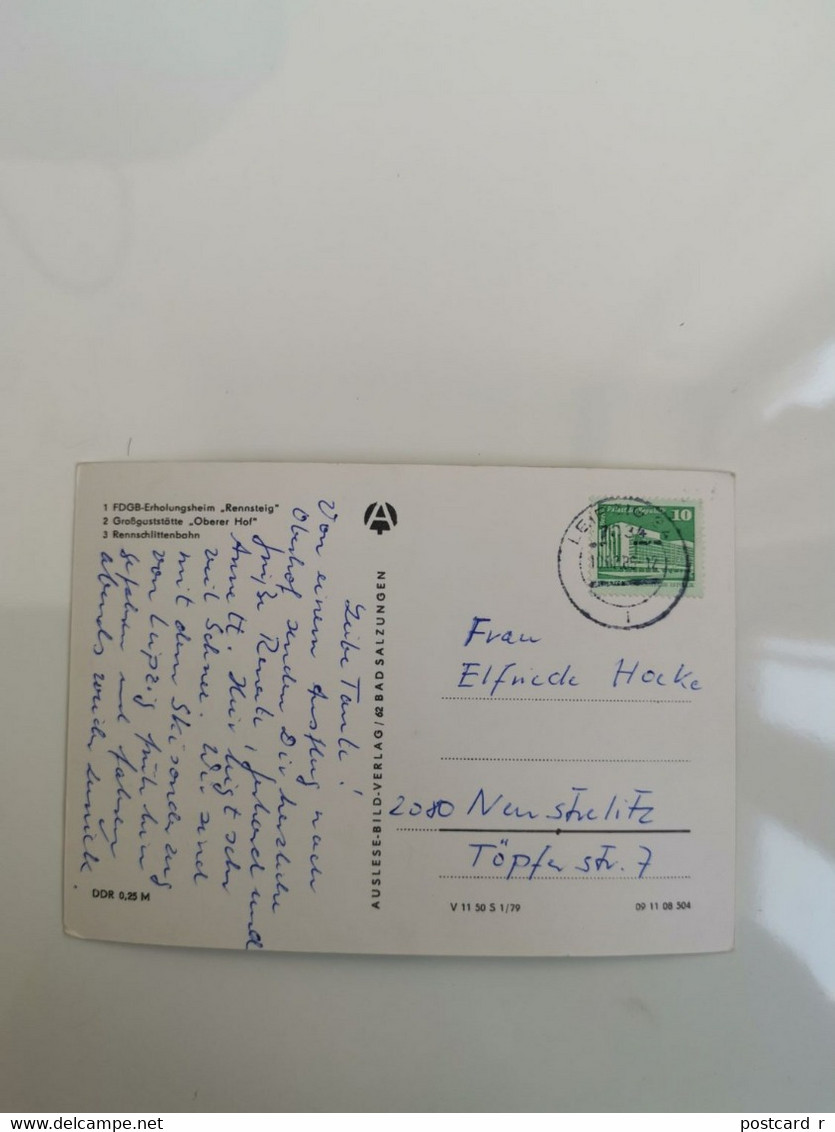 1 FDGB-Erholungsheim „Rennsteig"
2 Großgaststätte „Oberer Hof"
3 Rennschlittenbahn
Liebe Tante!
Von einem Ausflug nach
Oberhof senden Dir herzliche
Grüße Renate, Gerhard und
Annett. Hier liegt sehr
viel Schnee. Wir sind
mit dem Skisonderzug
von Leipzig früh hin
gefahren und fahren
abends wieder zurück.
DDR 0,25 M
A
AUSLESE-BILD-VERLAG/62 BAD SALZUNGEN
10
LEIPZIG
7034
Frau
Elfriede Hacke
2080 Neustrelitz
Töpferstr. 7
V 11 50 S 1/79
09 11 08 504
delcampe.net
postcard_r